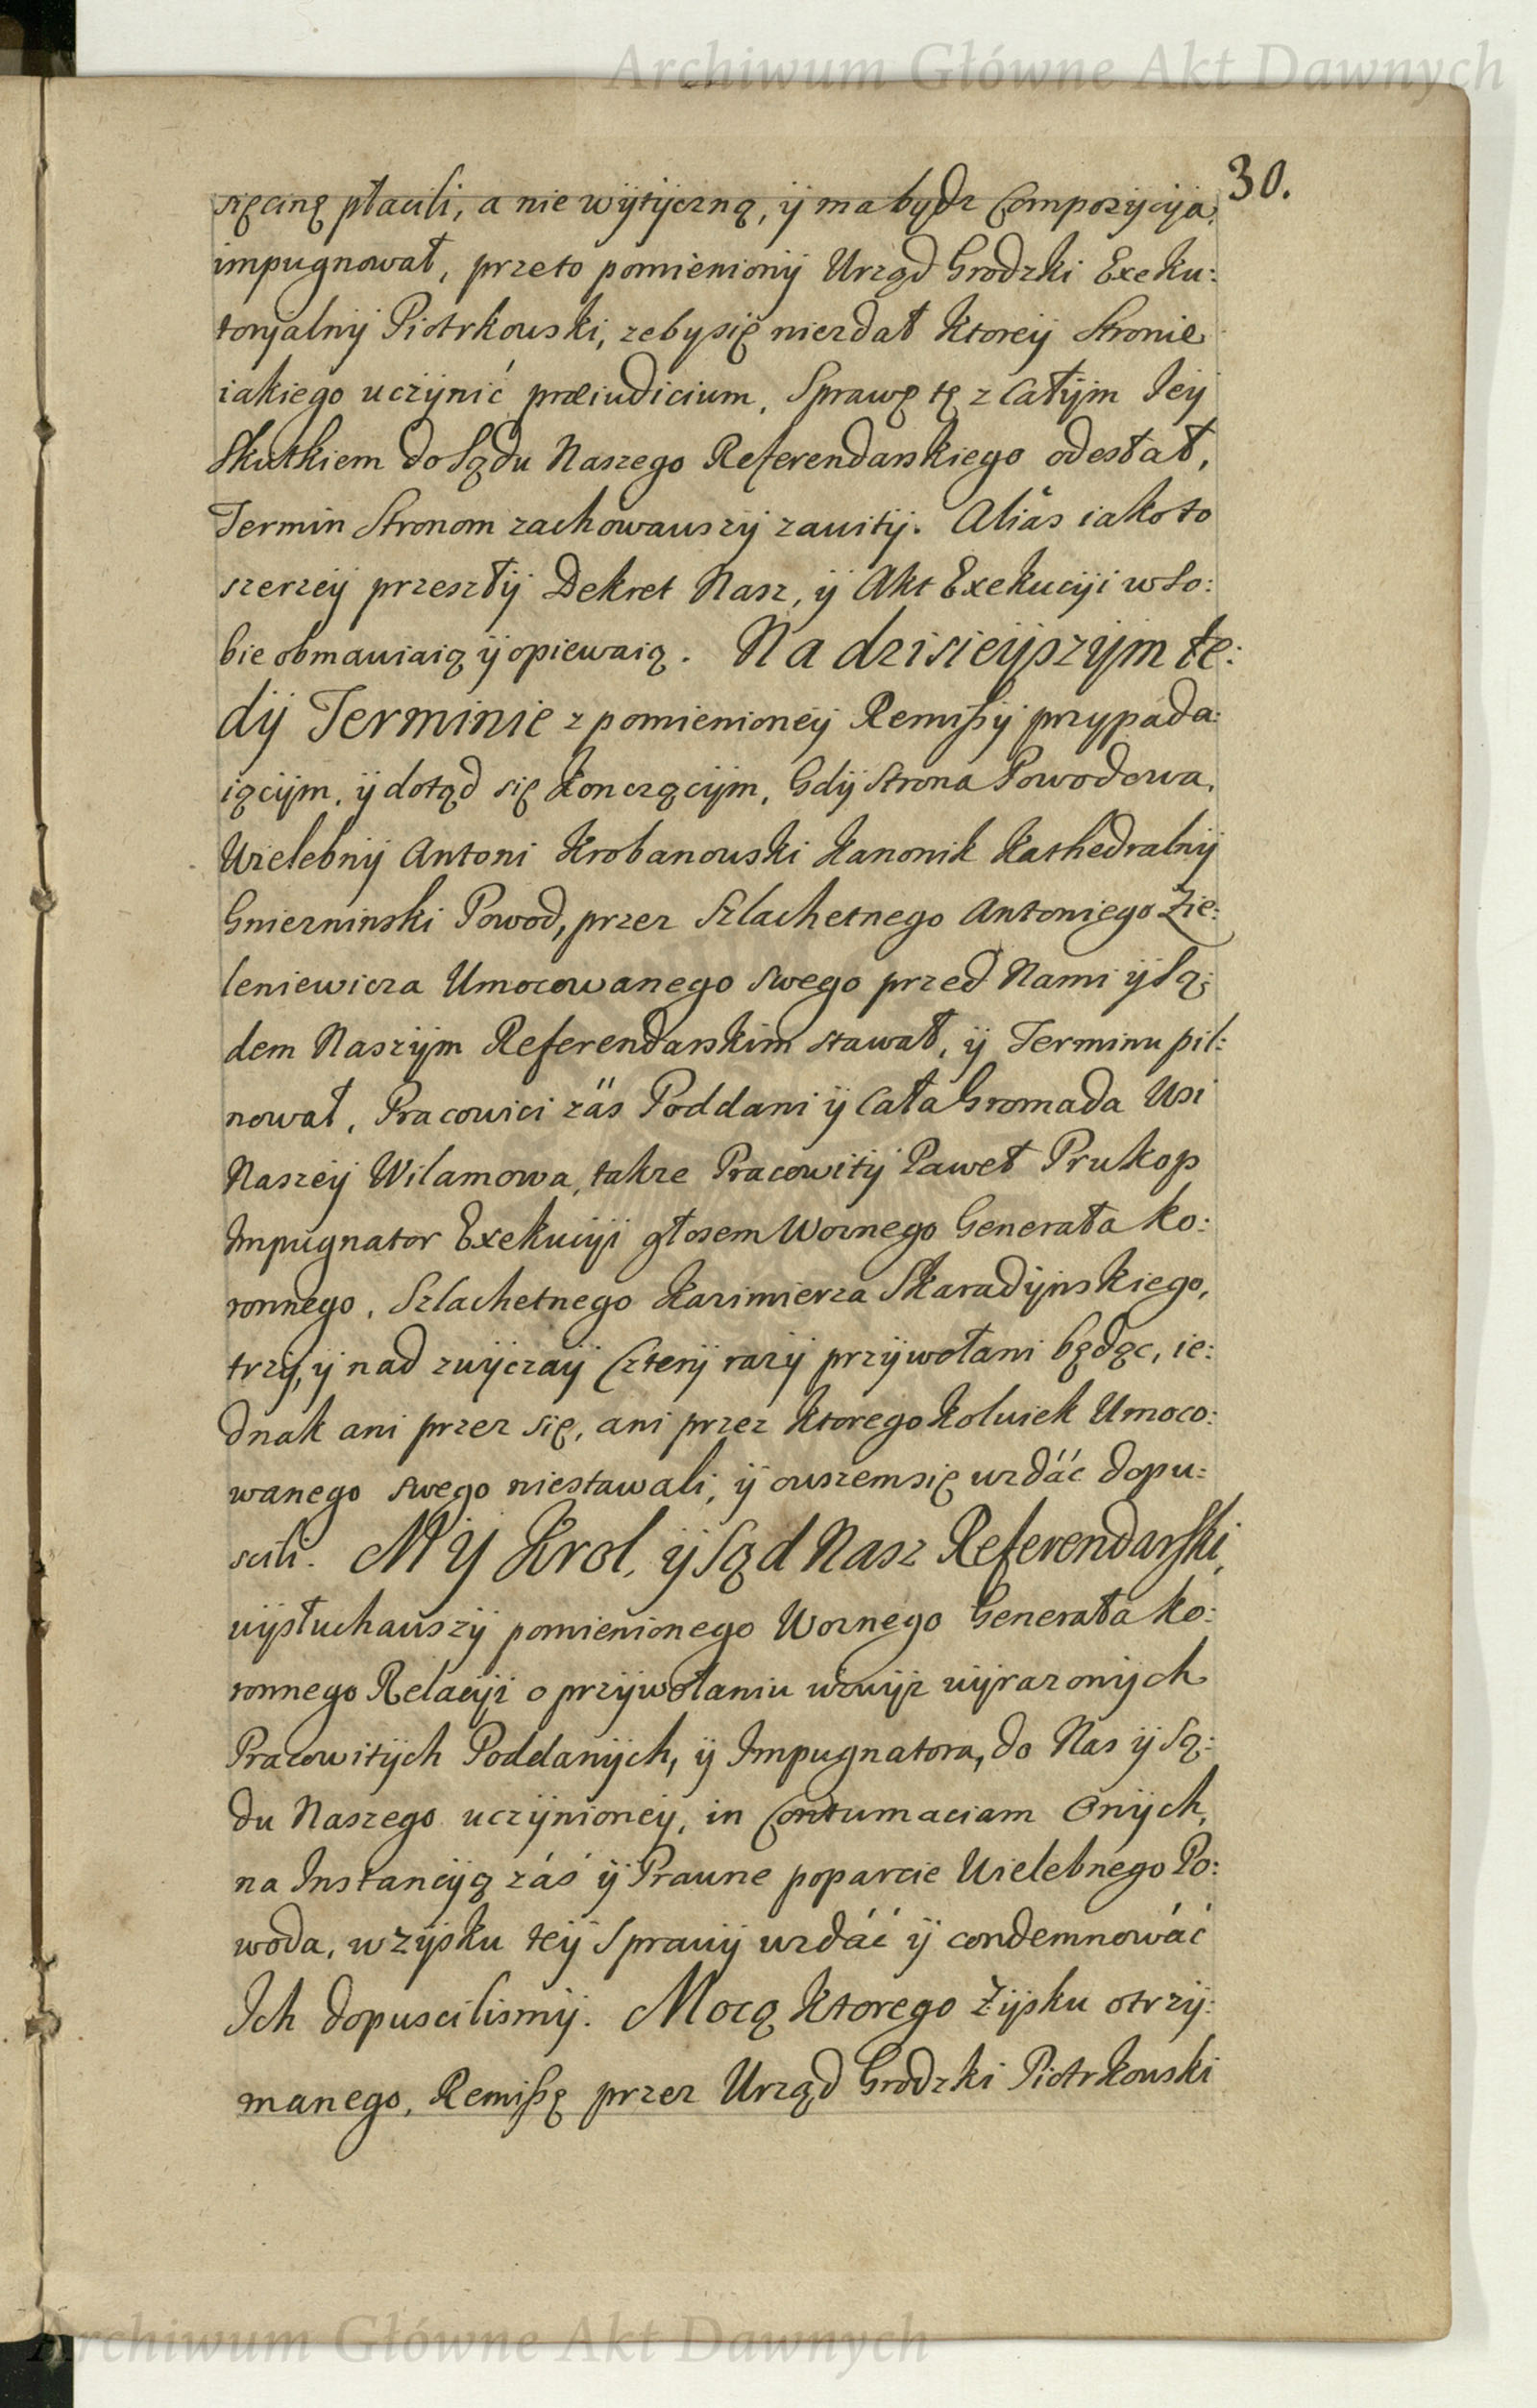 Archiwum Główne Akt Dawnych
30.
sięcinę płacili, a nie wÿtÿczną, ÿ ma bydz Compozÿcÿa
impugnował, przeto pomienionÿ Urząd Grodzki Exeku:
torÿalnÿ Piotrkowski, zebysię niezdał ktoreÿ Stronie
iakiego uczÿnić præiudicium, Sprawę tę z Całÿm Jeÿ
Skutkiem do Sądu Naszego Referendarskiego odesłał,
Termin Stronom zachowawszÿ zawitÿ. Aliás iakoto
szerzeÿ przeszłÿ Dekret Nasz, ÿ Akt Exekucÿi w So:
bie obmawiaią ÿ opiewaią. Na dzisieÿszÿm te:
dÿ Terminie z pomienioneÿ Remissÿ przypada:
iącÿm, ÿ dotąd się konczącÿm, Gdÿ Strona Powodowa,
Wielebnÿ Antoni Krobanowski Kanonik Kathedralnÿ
Gniezninski Powod, przez Szlachetnego Antoniego Zie:
leniewicza Umocowanego swego przed Nami ÿ Są:
dem Naszÿm Referendarskim stawał, ÿ Terminu pil:
nował, Pracowici zäs Poddani ÿ Cała Gromada Wsi
Naszeÿ Wilamowa, takze Pracowitÿ Paweł Prukop
Impugnator Exekucÿi głosem Woznego Generała Ko:
ronnego, Szlachetnego Kazimierza Skaradÿnskiego,
trzÿ, ÿ nad zwÿczaÿ Czterÿ razÿ przÿwołani będąc, ie:
dnak ani przez się, ani przez ktorego kolwiek Umoco:
wanego swego niestawali, ÿ owszemsię wzdáć dopu:
scili. MŸ Krol, ÿ Sąd Nasz Referendarski,
wÿsłuchawszÿ pomienionego Woznego Generała Ko:
ronnego Relacÿi o przÿwołaniu wzwÿz wÿrazonÿch
Pracowitÿch Poddanÿch, ÿ Impugnatora, do Nas ÿ Są:
du Naszego uczÿnioneÿ, in Contumaciam Onÿch,
na Instancÿą záś ÿ Prawne poparcie Wielebnego Po:
woda, w zÿsku teÿ Sprawÿ wzdáć ÿ condemnowáć
Ich dopuscilismÿ. Mocą ktorego zÿsku otrzÿ:
manego, Remissę przez Urząd Grodzki Piotrkowski
Archiwum Główne Akt Dawnych